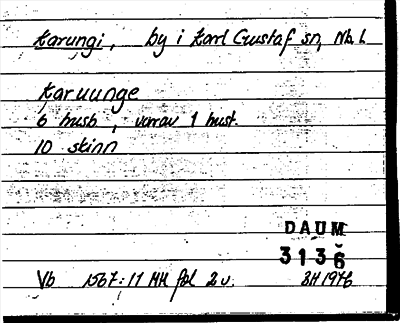 Karungi, by i Karl Gustaf sn, Nb. l.
Karuunge
6 husb, varav 1 hust.
10 skinn
DAUM
3136
Vb 1567:11 MH fol 2 v. BH 1976